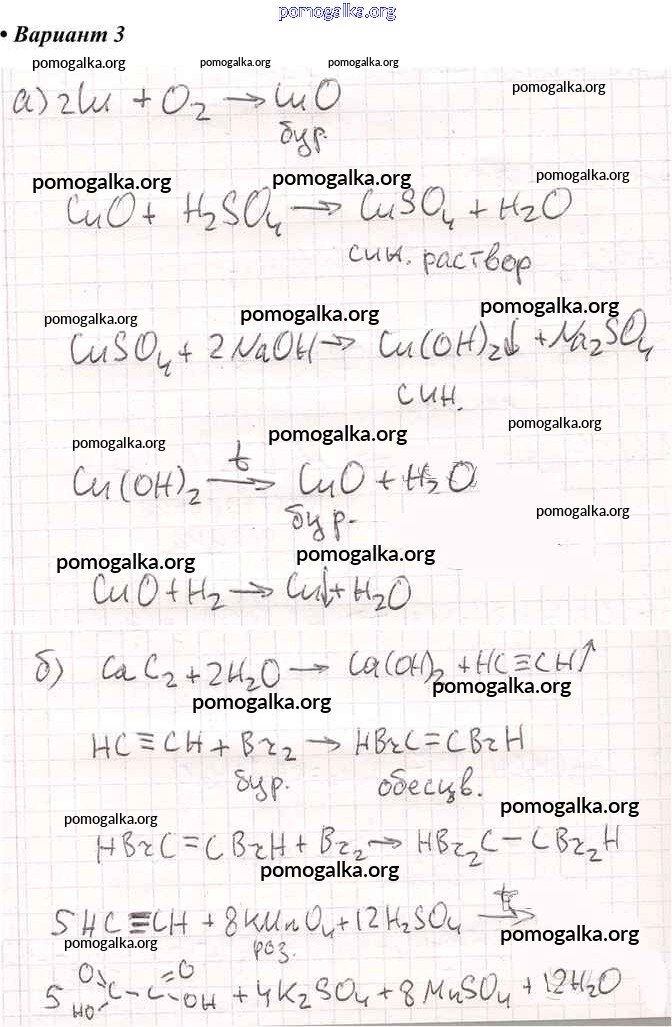 pomogalka.org
• Вариант 3
pomogalka.org pomogalka.org pomogalka.org
pomogalka.org
а) 2Cu + O₂ → CuO
бур.
pomogalka.org pomogalka.org pomogalka.org
CuO + H₂SO₄ → CuSO₄ + H₂O
син. раствор
pomogalka.org pomogalka.org pomogalka.org
CuSO₄ + 2NaOH → Cu(OH)₂↓ + Na₂SO₄
син.
pomogalka.org pomogalka.org pomogalka.org
Cu(OH)₂ t→ CuO + H₂O
бур.
pomogalka.org
pomogalka.org pomogalka.org
CuO + H₂ → Cu↓ + H₂O
б) CaC₂ + 2H₂O → Ca(OH)₂ + HC≡CH↑
pomogalka.org pomogalka.org
HC≡CH + Br₂ → HBrC=CBrH
бур. обесцв.
pomogalka.org pomogalka.org
HBrC=CBrH + Br₂ → HBr₂C–CBr₂H
pomogalka.org
5HC≡CH + 8KMnO₄ + 12H₂SO₄ t→
роз.
pomogalka.org pomogalka.org
5 O=C(HO)–C(=O)OH + 4K₂SO₄ + 8MnSO₄ + 12H₂O